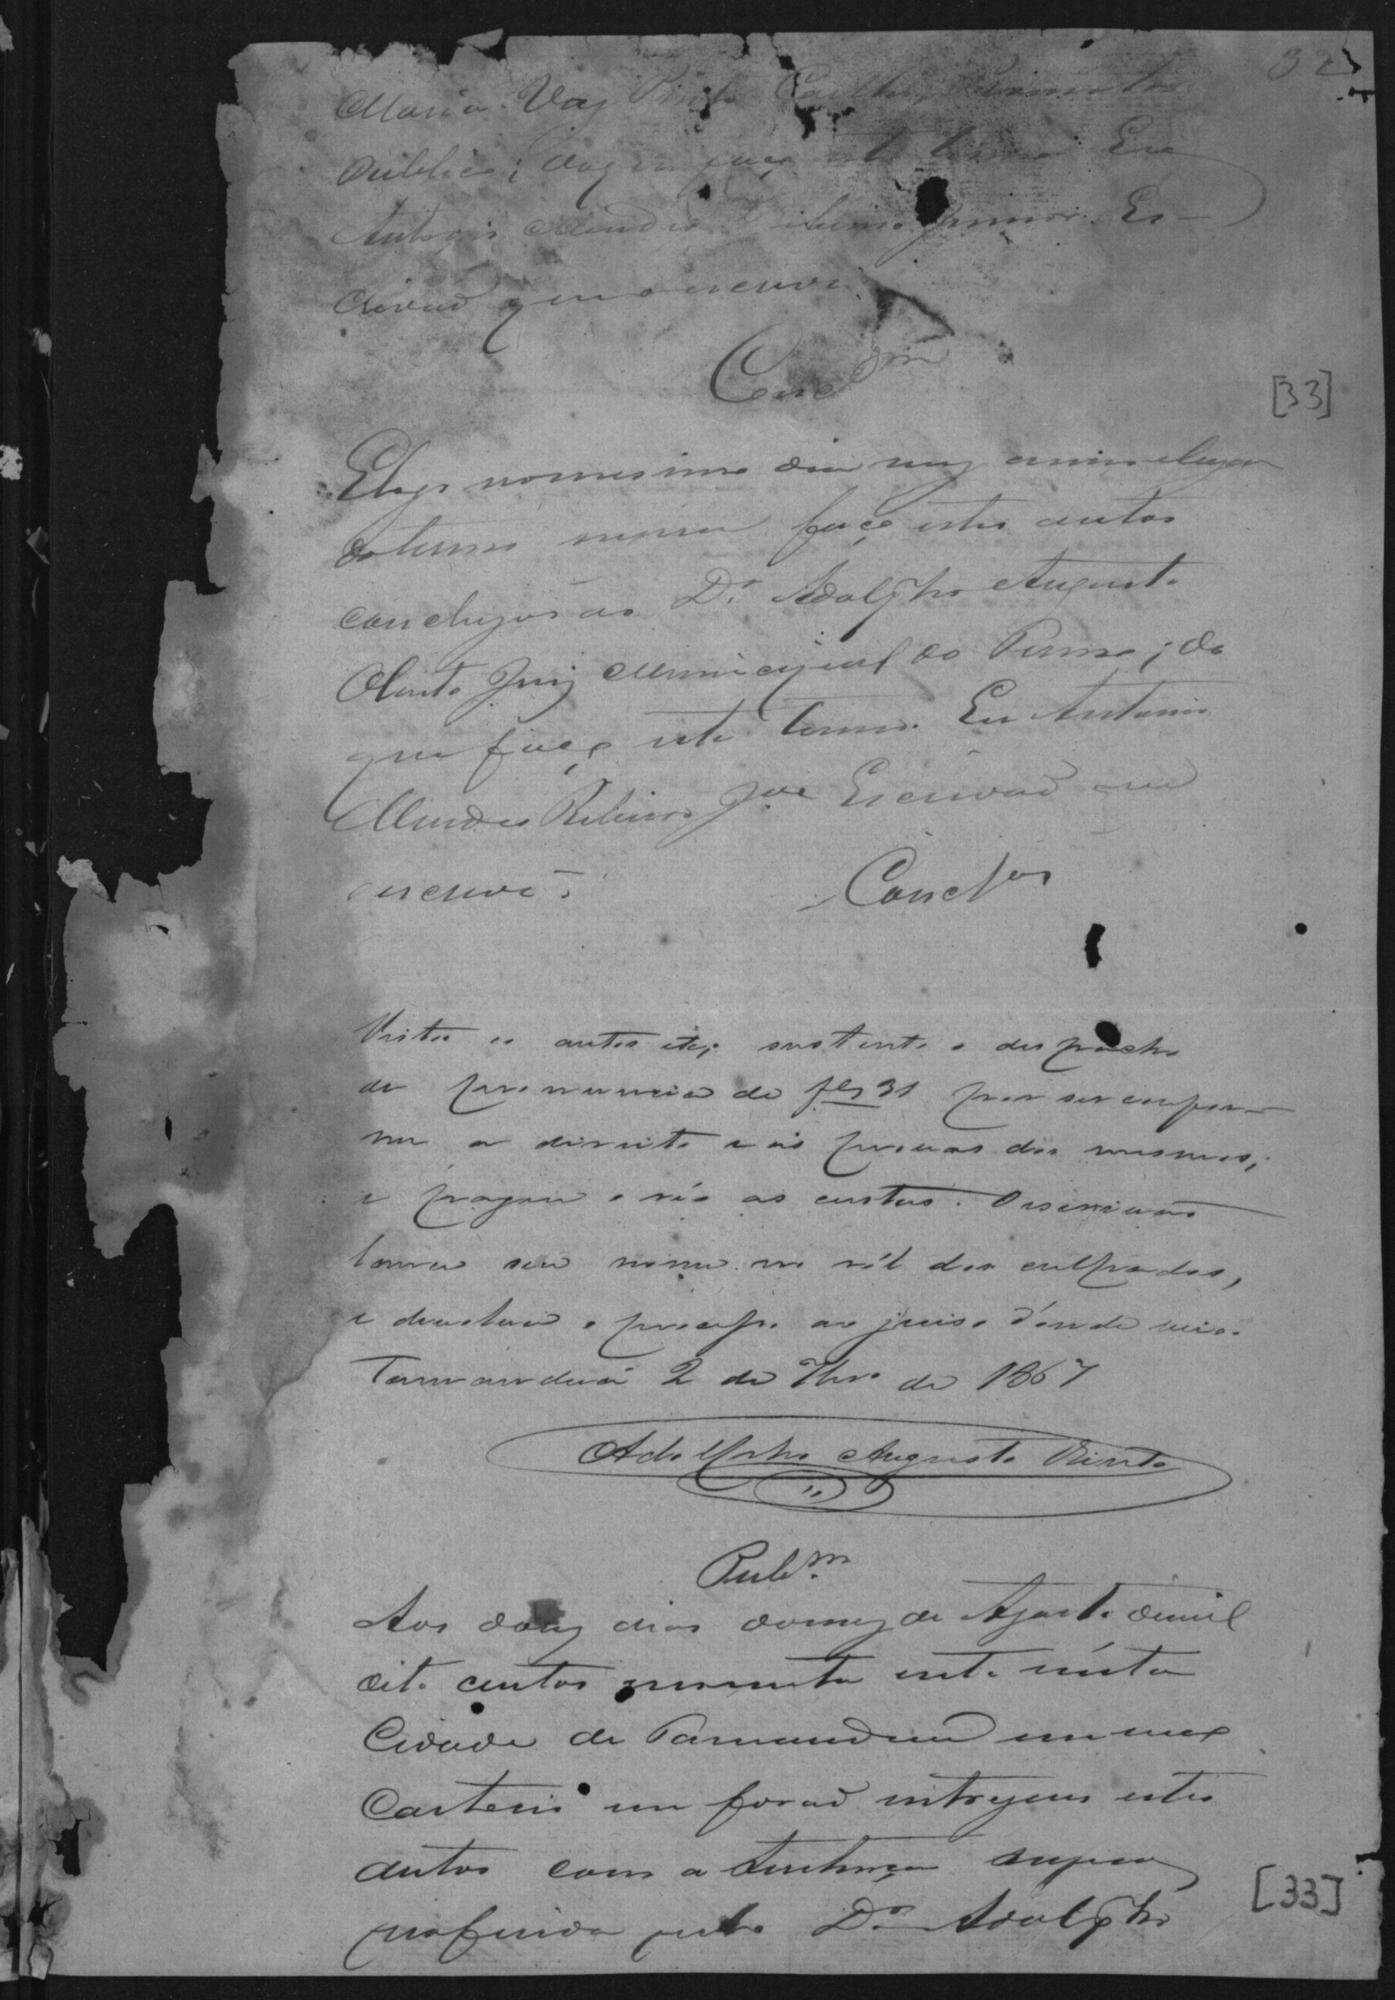 32
Maria Vaz Pinto Coelho, Promotor
Publico; do que faço este termo. Eu
Antonio Mendes Ribeiro Junior Es-
crivaõ que o escrevi.
Concl.m
[33]
E logo no mesmo dia mez anno e lugar
do termo supra faço estes autos
conclusos ao D.r Adolpho Augusto
Olinto Juiz Municipal do Termo; do
que faço este termo. Eu Antonio
Mendes Ribeiro J.or Escrivaõ que
escrevi.
Concl.os
Vistos os autos etc; sustento o despacho
de pronuncia de fls 31 por ser confor-
me a direito e ás provas dos mesmos;
e pague o réo as custas. O escrivaõ
lance seu nome no ról dos culpados,
e devolva o processo ao juiso d'onde veio.
Tamanduá 2 de de 1867
Adolpho Augusto Olinto
Pub.m
Aos dous dias do mez de Agosto de mil
oito centos sessenta e sete nésta
Cidade de Tamanduá em meo
Cartorio me foraõ entregues estes
autos com a Sentença supra
proferida pelo D.or Adolpho
[33]